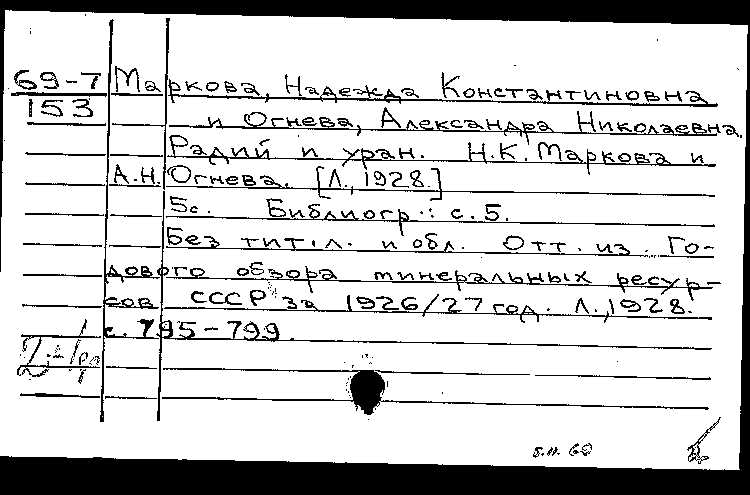 69-7 Маркова, Надежда Константиновна
153 и Огнева, Александра Николаевна.
Радий и уран. Н.К. Маркова и
А.Н. Огнева. [Л., 1928.]
5с. Библиогр.: с. 5.
Без тит. л. и обл. Отт. из. Го-
дового обзора минеральных ресур-
сов СССР за 1926/27 год. Л., 1928.
с. 795-799.
5.11.69